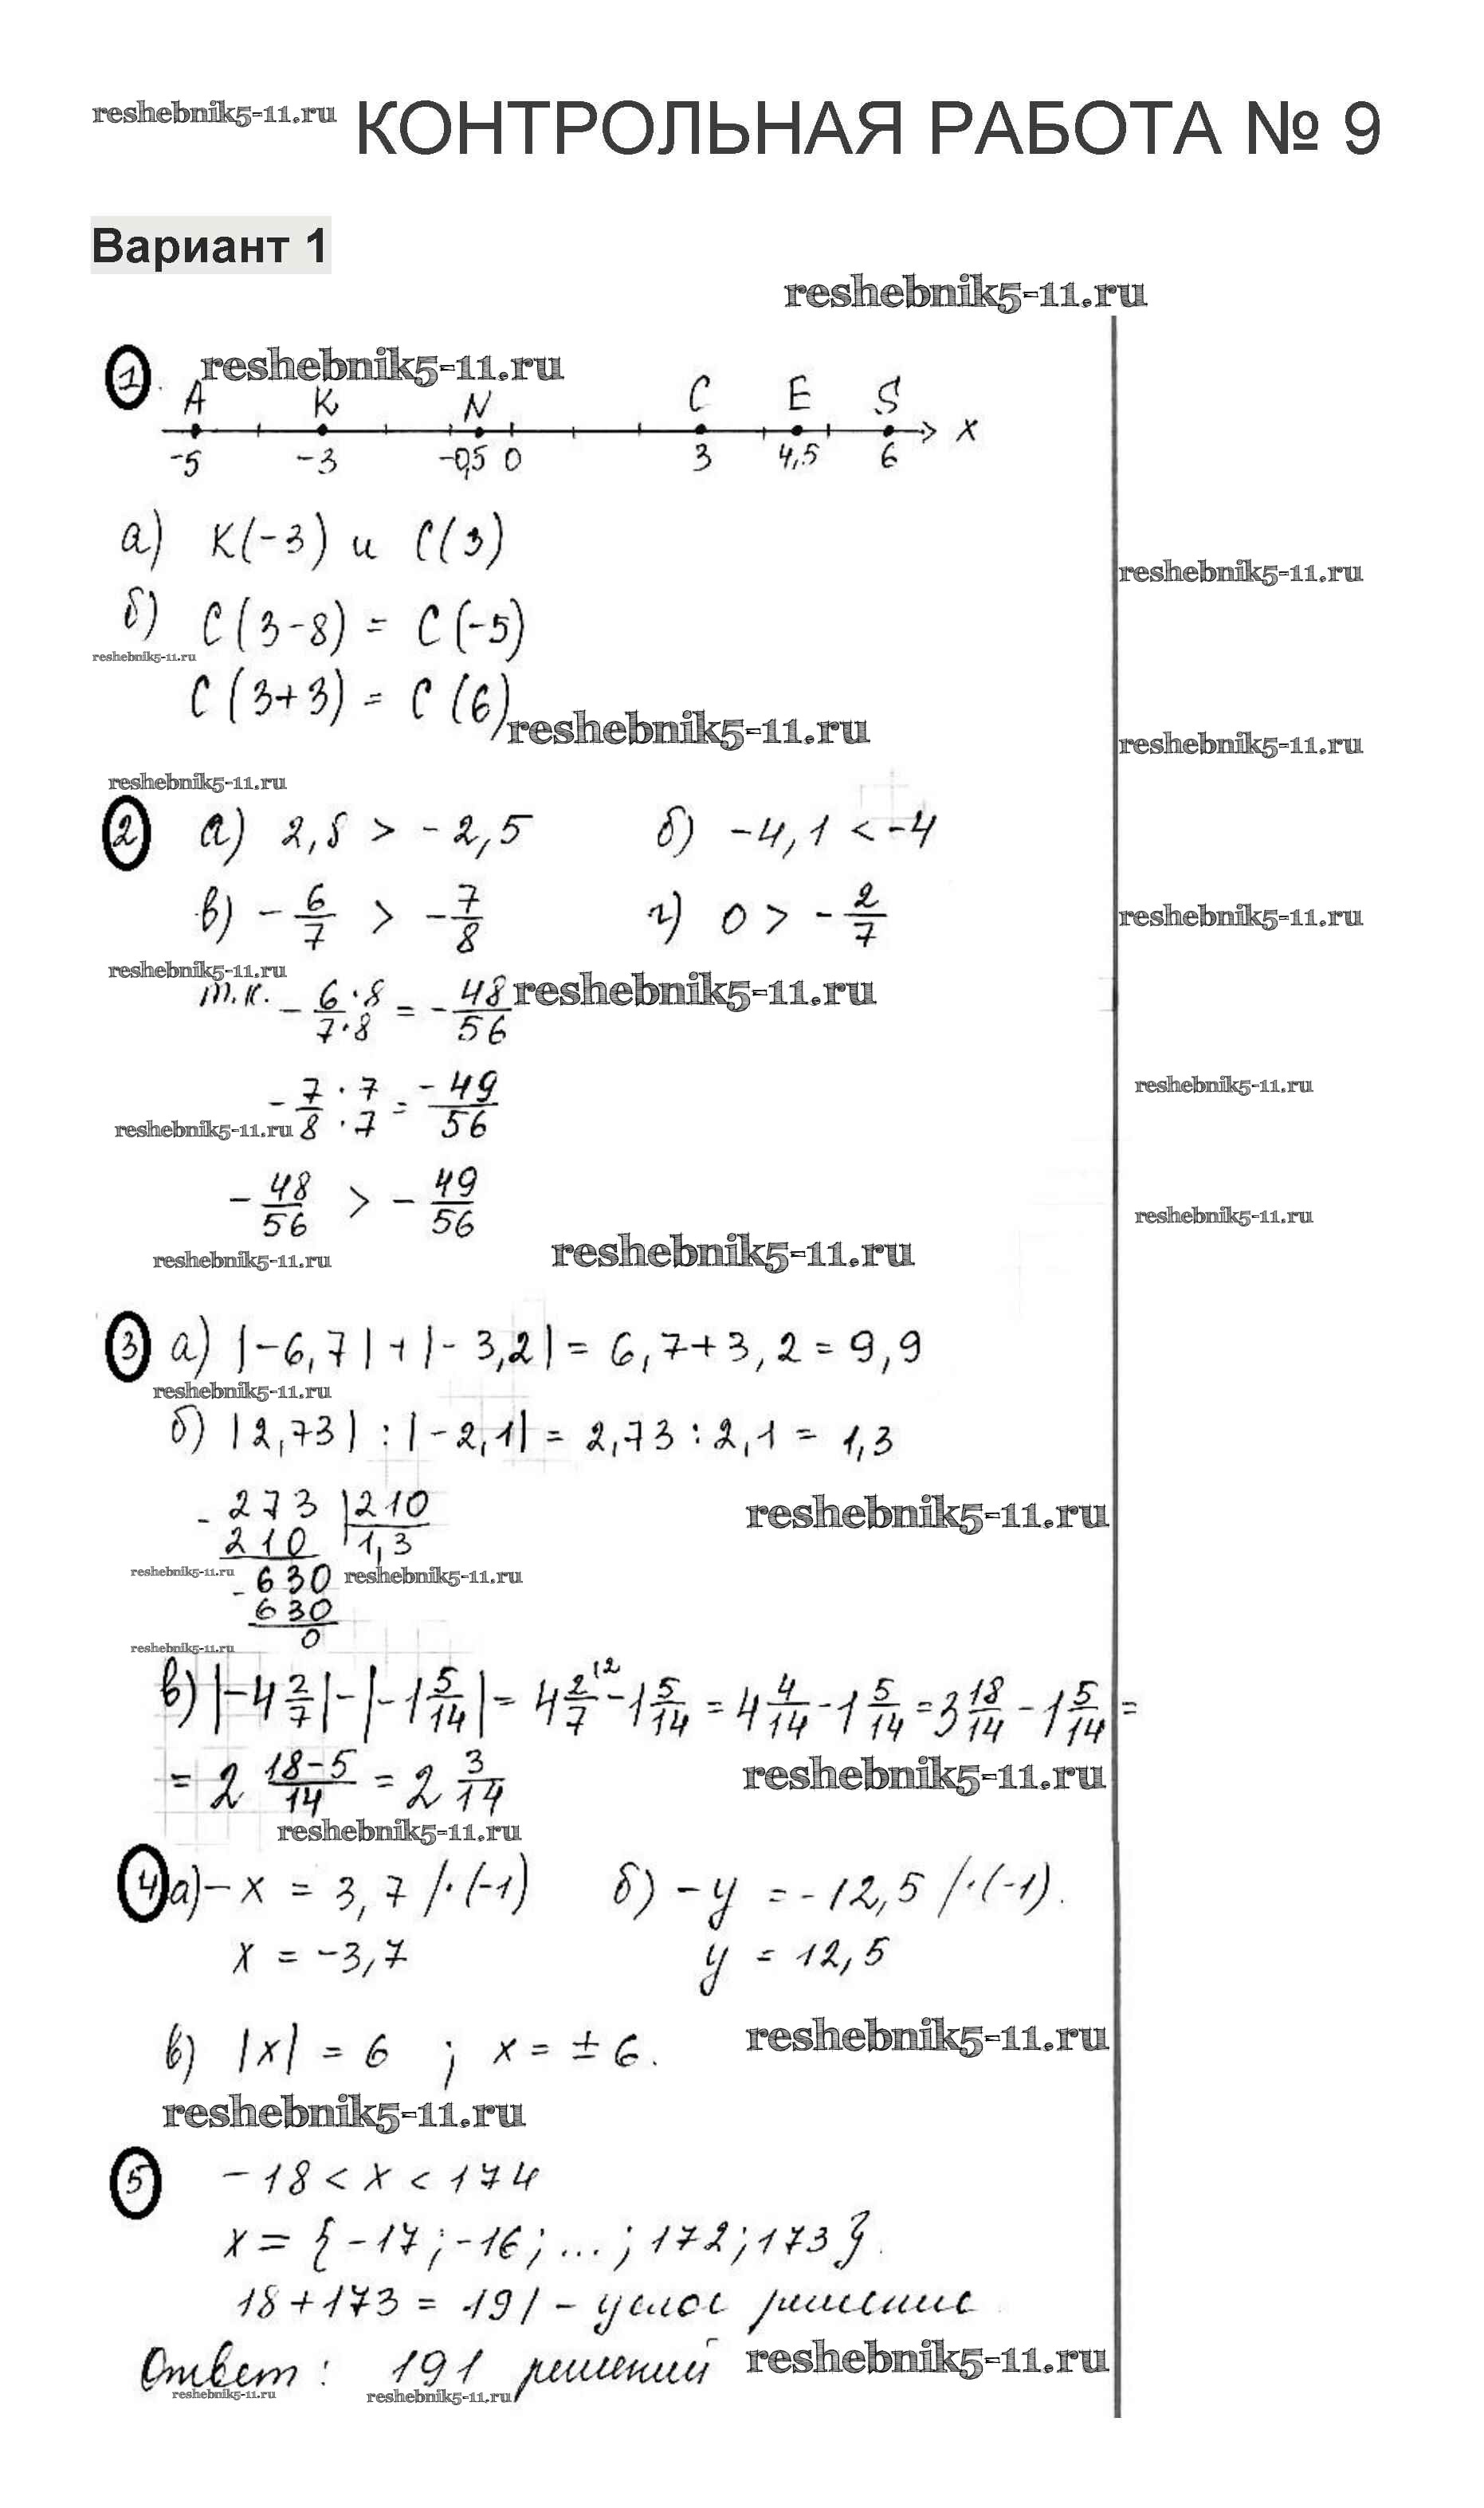 reshebnik5-11.ru КОНТРОЛЬНАЯ РАБОТА № 9
Вариант 1
reshebnik5-11.ru
1. reshebnik5-11.ru
A K N C E S
-5 -3 -0,5 0 3 4,5 6 x
а) K(-3) и C(3)
reshebnik5-11.ru
б) C(3-8) = C(-5)
reshebnik5-11.ru
C(3+3) = C(6)
reshebnik5-11.ru
reshebnik5-11.ru
reshebnik5-11.ru
2 а) 2,8 > -2,5 б) -4,1 < -4
в) -6/7 > -7/8 г) 0 > -2/7
reshebnik5-11.ru
reshebnik5-11.ru
т.к. -6·8/7·8 = -48/56
reshebnik5-11.ru
-7·7/8·7 = -49/56
reshebnik5-11.ru
reshebnik5-11.ru
-48/56 > -49/56
reshebnik5-11.ru
reshebnik5-11.ru
reshebnik5-11.ru
3 а) |-6,7|+|-3,2| = 6,7+3,2 = 9,9
reshebnik5-11.ru
б) |2,73| : |-2,1| = 2,73 : 2,1 = 1,3
- 273 |210
210 1,3
reshebnik5-11.ru
reshebnik5-11.ru - 630 reshebnik5-11.ru
630
0
reshebnik5-11.ru
в) |-4 2/7| - |-1 5/14| = 4 2/7 \2 - 1 5/14 = 4 4/14 - 1 5/14 = 3 18/14 - 1 5/14 =
= 2 18-5/14 = 2 3/14
reshebnik5-11.ru
reshebnik5-11.ru
4 а) -x = 3,7 /·(-1) б) -y = -12,5 /·(-1).
x = -3,7 y = 12,5
в) |x| = 6 ; x = ±6.
reshebnik5-11.ru
reshebnik5-11.ru
5 -18 < x < 174
x = {-17; -16; ...; 172; 173}.
18+173 = 191 -
Ответ: 191 решений
reshebnik5-11.ru
reshebnik5-11.ru reshebnik5-11.ru